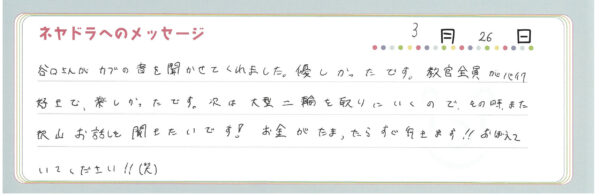 ネヤドラへのメッセージ
3 月 26 日
谷口さんが カブの音を聞かせてくれました。優しかったです。教官全員がバイク
好きで、楽しかったです。次は大型二輪を取りにいくので、その時、また
沢山お話しを聞きたいです! お金がたまったらすぐ行きます!! おぼえて
いてください!!(笑)